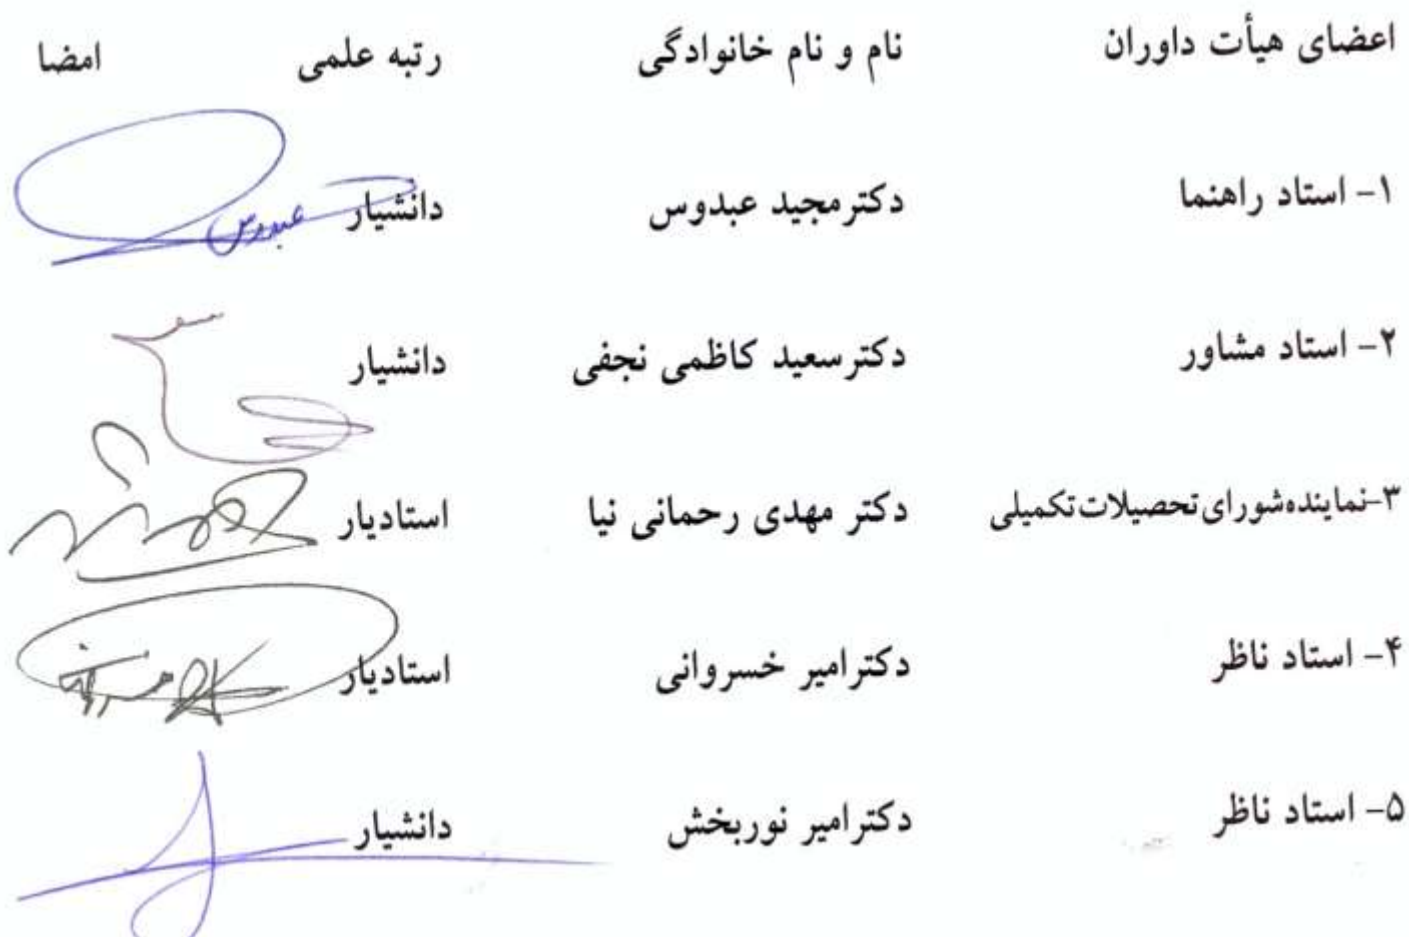 اعضای هیأت داوران نام و نام خانوادگی رتبه علمی امضا
۱- استاد راهنما دکترمجید عبدوس دانشیار
عبدوس
۲- استاد مشاور دکترسعید کاظمی نجفی دانشیار
۳-نماینده‌شورای‌تحصیلات‌تکمیلی دکتر مهدی رحمانی نیا استادیار
۴- استاد ناظر دکترامیر خسروانی استادیار
۵- استاد ناظر دکترامیر نوربخش دانشیار